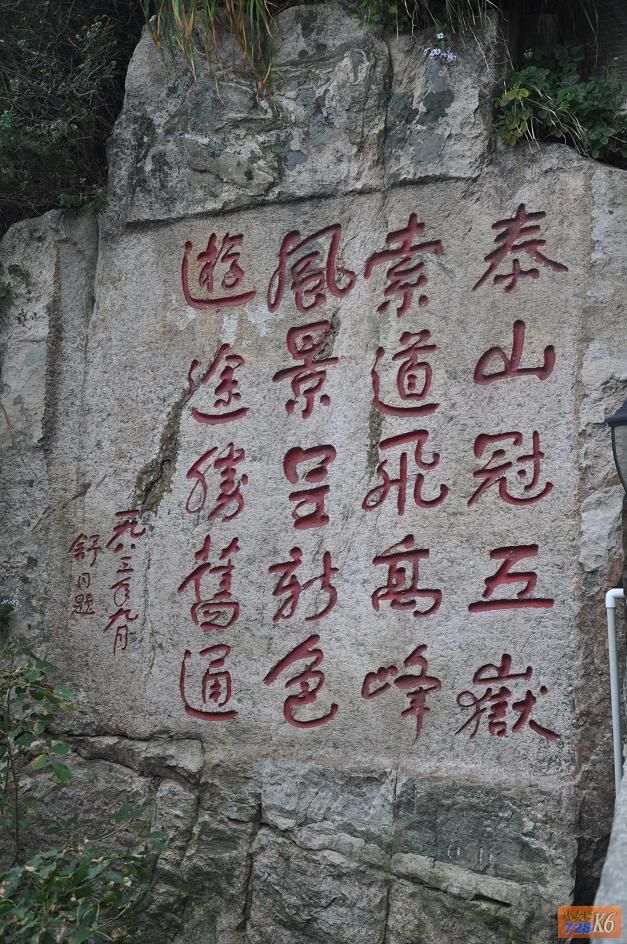 泰山冠五嶽
索道飛高峰
風景呈新色
遊途勝舊通
一九八三年九月
舒同題
728K6